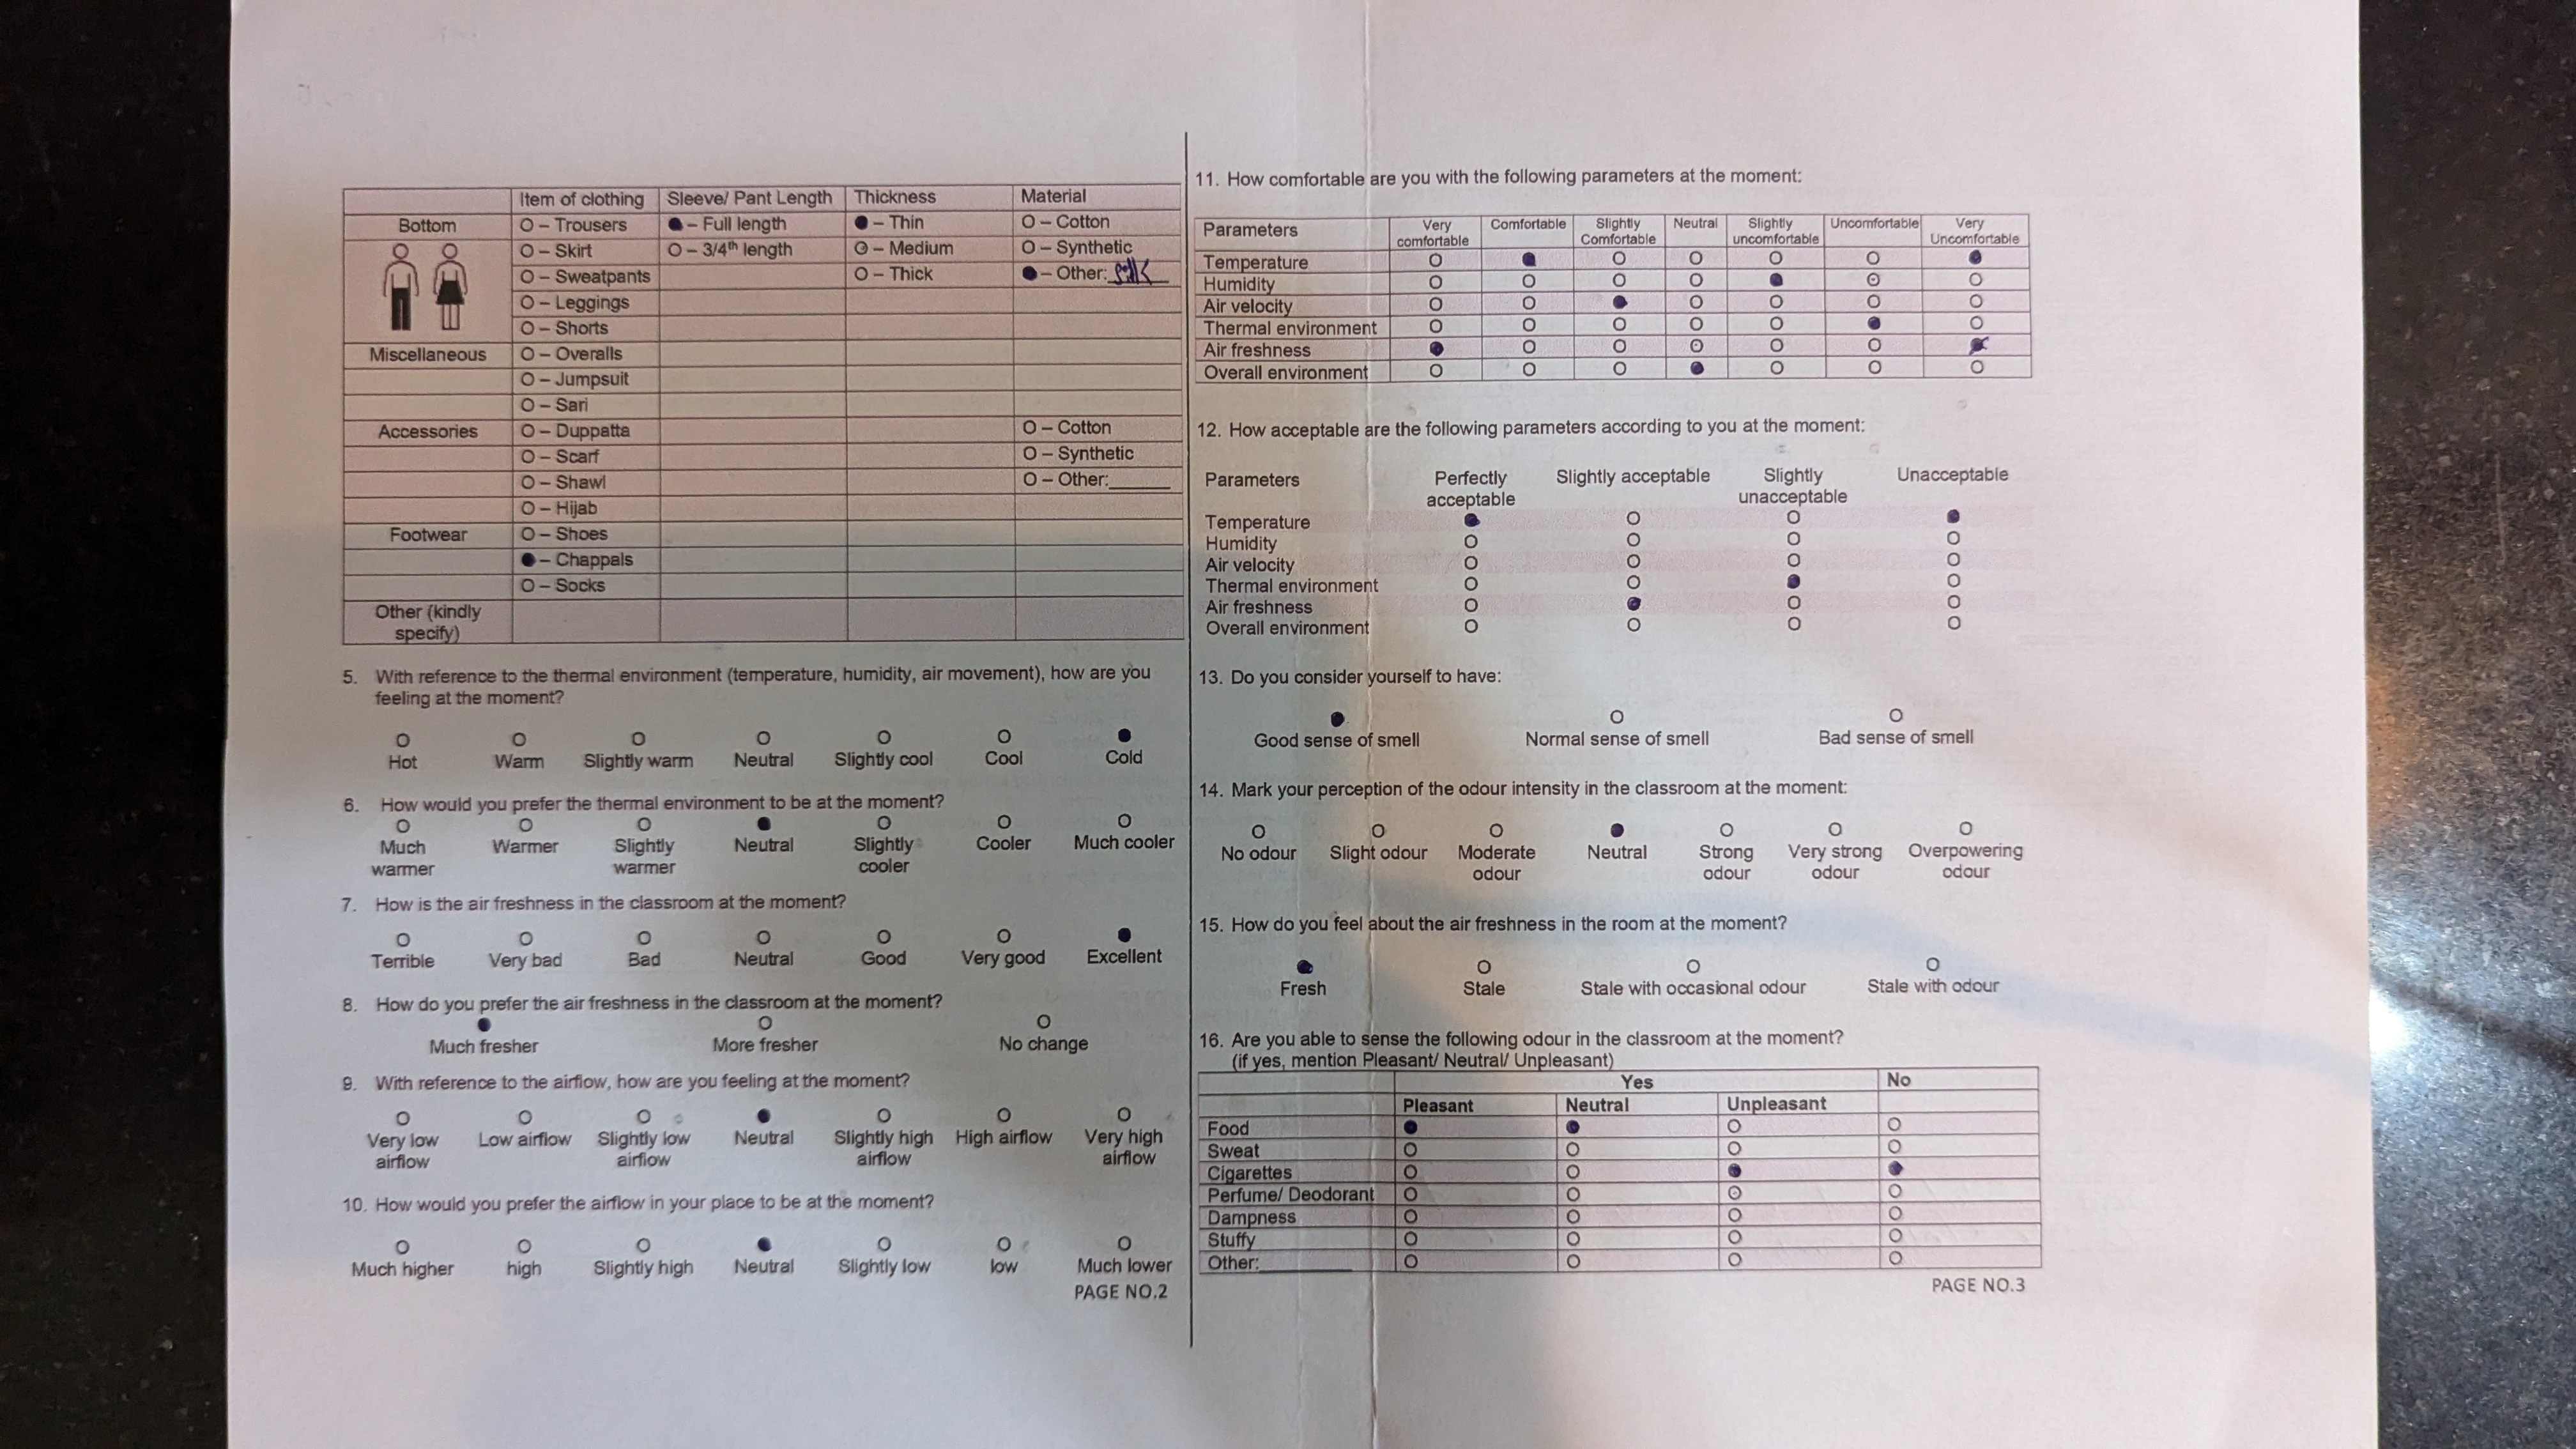 Item of clothing Sleeve/ Pant Length Thickness Material
Bottom O – Trousers ● – Full length ● – Thin O – Cotton
O – Skirt O – 3/4th length O – Medium O – Synthetic
O – Sweatpants O – Thick ● – Other: silk
O – Leggings
O – Shorts
Miscellaneous O – Overalls
O – Jumpsuit
O – Sari
Accessories O – Duppatta O – Cotton
O – Scarf O – Synthetic
O – Shawl O – Other:______
O – Hijab
Footwear O – Shoes
● – Chappals
O – Socks
Other (kindly
specify)
5. With reference to the thermal environment (temperature, humidity, air movement), how are you
feeling at the moment?
O O O O O O ●
Hot Warm Slightly warm Neutral Slightly cool Cool Cold
6. How would you prefer the thermal environment to be at the moment?
O O O ● O O O
Much Warmer Slightly Neutral Slightly Cooler Much cooler
warmer warmer cooler
7. How is the air freshness in the classroom at the moment?
O O O O O O ●
Terrible Very bad Bad Neutral Good Very good Excellent
8. How do you prefer the air freshness in the classroom at the moment?
● O O
Much fresher More fresher No change
9. With reference to the airflow, how are you feeling at the moment?
O O O ● O O O
Very low Low airflow Slightly low Neutral Slightly high High airflow Very high
airflow airflow airflow airflow
10. How would you prefer the airflow in your place to be at the moment?
O O O ● O O O
Much higher high Slightly high Neutral Slightly low low Much lower
PAGE NO.2
11. How comfortable are you with the following parameters at the moment:
Parameters Very Comfortable Slightly Neutral Slightly Uncomfortable Very
comfortable Comfortable uncomfortable Uncomfortable
Temperature O ● O O O O ●
Humidity O O O O ● O O
Air velocity O O ● O O O O
Thermal environment O O O O O ● O
Air freshness ● O O O O O ●
Overall environment O O O ● O O O
12. How acceptable are the following parameters according to you at the moment:
Parameters Perfectly Slightly acceptable Slightly Unacceptable
acceptable unacceptable
Temperature ● O O ●
Humidity O O O O
Air velocity O O O O
Thermal environment O O ● O
Air freshness O ● O O
Overall environment O O O O
13. Do you consider yourself to have:
● O O
Good sense of smell Normal sense of smell Bad sense of smell
14. Mark your perception of the odour intensity in the classroom at the moment:
O O O ● O O O
No odour Slight odour Moderate Neutral Strong Very strong Overpowering
odour odour odour odour
15. How do you feel about the air freshness in the room at the moment?
● O O O
Fresh Stale Stale with occasional odour Stale with odour
16. Are you able to sense the following odour in the classroom at the moment?
(if yes, mention Pleasant/ Neutral/ Unpleasant)
Yes No
Pleasant Neutral Unpleasant
Food ● ● O O
Sweat O O O O
Cigarettes O O ● ●
Perfume/ Deodorant O O O O
Dampness O O O O
Stuffy O O O O
Other:________ O O O O
PAGE NO.3